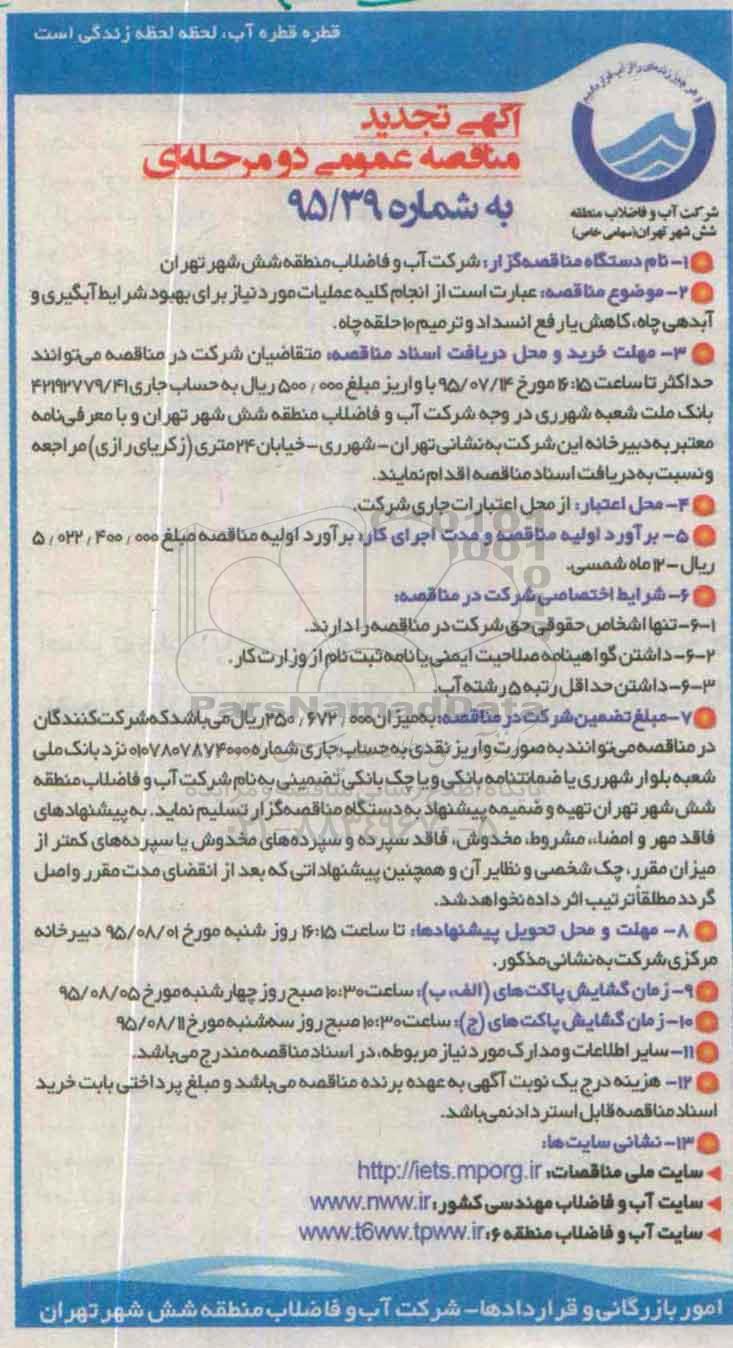 قطره قطره آب، لحظه لحظه زندگی است
و هر چیز زنده‌ای را از آب قرار دادیم
شرکت آب و فاضلاب منطقه
شش شهر تهران(سهامی خاص)
آگهی تجدید
مناقصه عمومی دو مرحله‌ای
به شماره ۹۵/۳۹
۱- نام دستگاه مناقصه‌گزار: شرکت آب و فاضلاب منطقه شش شهر تهران
۲- موضوع مناقصه: عبارت است از انجام کلیه عملیات مورد نیاز برای بهبود شرایط آبگیری و
آبدهی چاه، کاهش یا رفع انسداد و ترمیم ۱۰ حلقه چاه.
۳- مهلت خرید و محل دریافت اسناد مناقصه: متقاضیان شرکت در مناقصه می‌توانند
حداکثر تا ساعت ۱۶:۱۵ مورخ ۹۵/۰۷/۱۴ با واریز مبلغ ۵۰۰,۰۰۰ ریال به حساب جاری ۴۲۱۹۲۷۷۹/۴۱
بانک ملت شعبه شهرری در وجه شرکت آب و فاضلاب منطقه شش شهر تهران و با معرفی‌نامه
معتبر به دبیرخانه این شرکت به نشانی تهران - شهرری - خیابان ۲۴ متری (زکریای رازی) مراجعه
و نسبت به دریافت اسناد مناقصه اقدام نمایند.
۴- محل اعتبار: از محل اعتبارات جاری شرکت.
۵- برآورد اولیه مناقصه و مدت اجرای کار: برآورد اولیه مناقصه مبلغ ۵,۰۲۲,۴۰۰,۰۰۰
ریال - ۱۲ ماه شمسی.
۶- شرایط اختصاصی شرکت در مناقصه:
۶-۱- تنها اشخاص حقوقی حق شرکت در مناقصه را دارند.
۶-۲- داشتن گواهینامه صلاحیت ایمنی یا نامه ثبت نام از وزارت کار.
۶-۳- داشتن حداقل رتبه ۵ رشته آب.
۷- مبلغ تضمین شرکت در مناقصه: به میزان ۲۵۰,۶۷۲,۰۰۰ ریال می‌باشد که شرکت‌کنندگان
در مناقصه می‌توانند به صورت واریز نقدی به حساب جاری شماره ۰۱۰۷۸۰۷۸۷۴۰۰۰ نزد بانک ملی
شعبه بلوار شهرری یا ضمانتنامه بانکی و یا چک بانکی تضمینی به نام شرکت آب و فاضلاب منطقه
شش شهر تهران تهیه و ضمیمه پیشنهاد به دستگاه مناقصه‌گزار تسلیم نماید. به پیشنهادهای
فاقد مهر و امضا، مشروط، مخدوش، فاقد سپرده و سپرده‌های مخدوش یا سپرده‌های کمتر از
میزان مقرر، چک شخصی و نظایر آن و همچنین پیشنهاداتی که بعد از انقضای مدت مقرر واصل
گردد مطلقاً ترتیب اثر داده نخواهد شد.
۸- مهلت و محل تحویل پیشنهادها: تا ساعت ۱۶:۱۵ روز شنبه مورخ ۹۵/۰۸/۰۱ دبیرخانه
مرکزی شرکت به نشانی مذکور.
۹- زمان گشایش پاکت‌های (الف، ب): ساعت ۱۰:۳۰ صبح روز چهارشنبه مورخ ۹۵/۰۸/۰۵
۱۰- زمان گشایش پاکت‌های (ج): ساعت ۱۰:۳۰ صبح روز سه‌شنبه مورخ ۹۵/۰۸/۱۱
۱۱- سایر اطلاعات و مدارک مورد نیاز مربوطه، در اسناد مناقصه مندرج می‌باشد.
۱۲- هزینه درج یک نوبت آگهی به عهده برنده مناقصه می‌باشد و مبلغ پرداختی بابت خرید
اسناد مناقصه قابل استرداد نمی‌باشد.
۱۳- نشانی سایت‌ها:
سایت ملی مناقصات: http://iets.mporg.ir
سایت آب و فاضلاب مهندسی کشور: www.nww.ir
سایت آب و فاضلاب منطقه ۶: www.t6ww.tpww.ir
امور بازرگانی و قراردادها - شرکت آب و فاضلاب منطقه شش شهر تهران
ParsNamadData